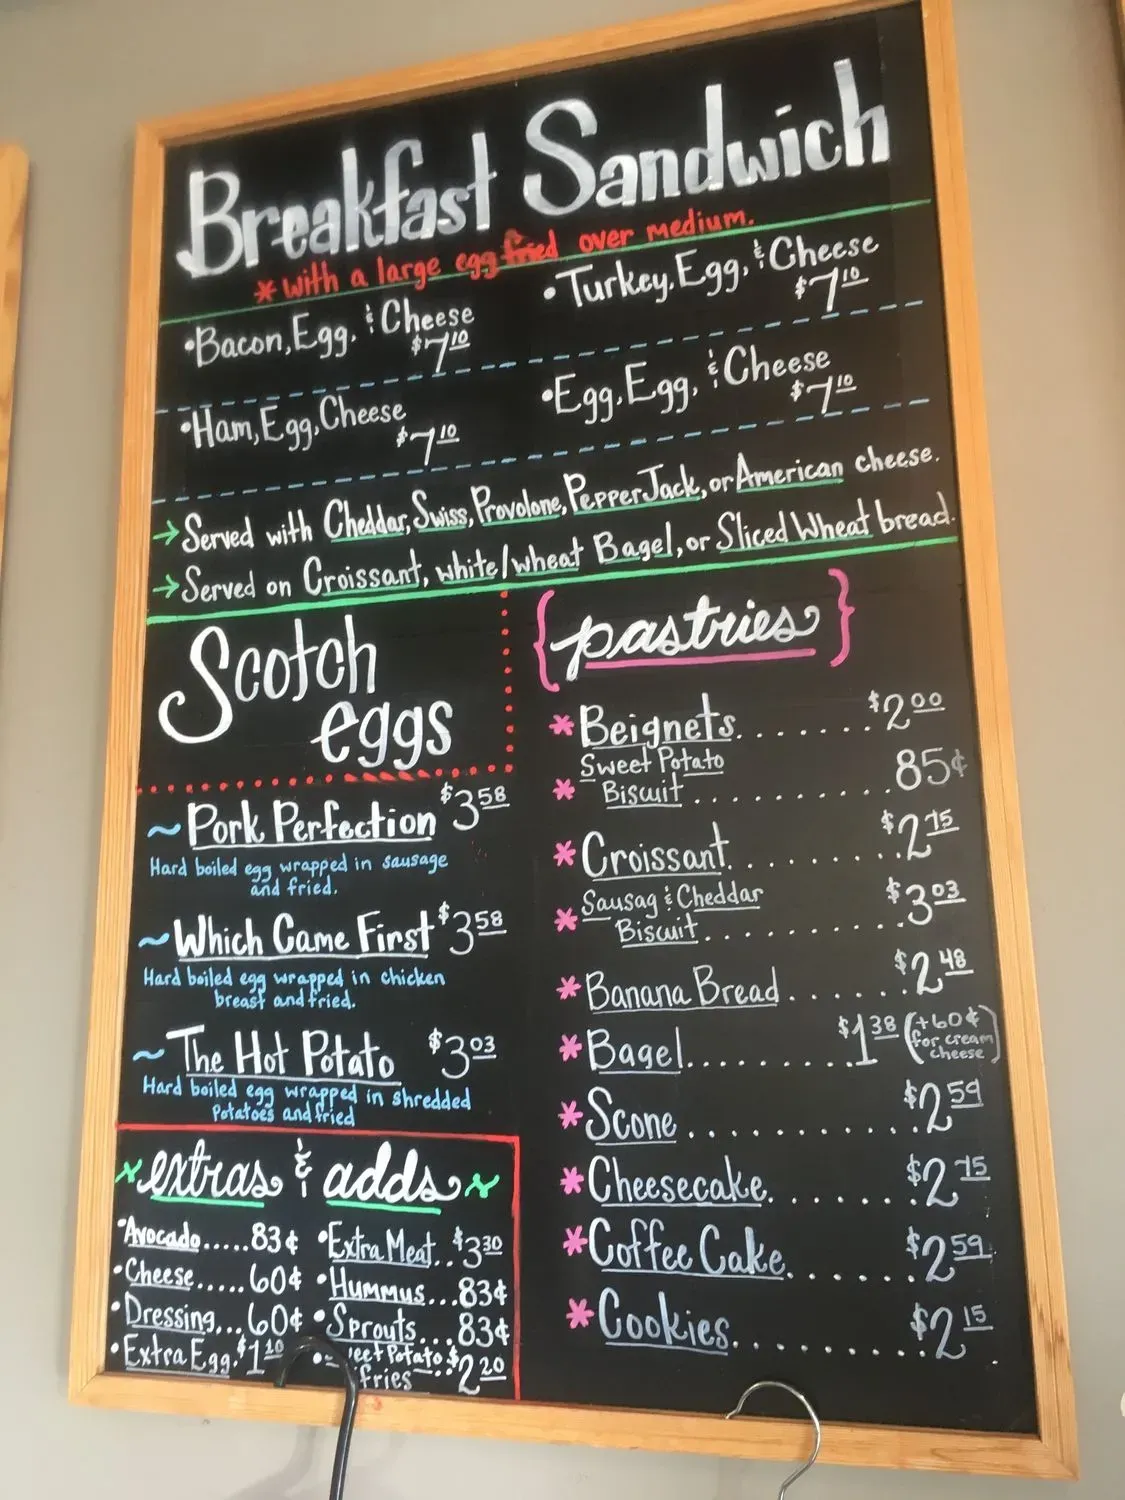 Breakfast Sandwich
* with a large egg fried over medium.
•Bacon, Egg, & Cheese
$7.10
•Turkey, Egg, & Cheese
$7.10
•Ham, Egg, Cheese
$7.10
•Egg, Egg, & Cheese
$7.10
→Served with Cheddar, Swiss, Provolone, PepperJack, or American cheese.
→Served on Croissant, white/wheat Bagel, or Sliced Wheat bread.
Scotch
eggs
~Pork Perfection $3.58
Hard boiled egg wrapped in sausage
and fried.
~Which Came First $3.58
Hard boiled egg wrapped in chicken
breast and fried.
~The Hot Potato $3.03
Hard boiled egg wrapped in shredded
Potatoes and fried
~extras & adds~
•Avocado.....83¢
•Cheese.....60¢
•Dressing...60¢
•Extra Egg.$1.10
•Extra Meat..$3.30
•Hummus...83¢
•Sprouts...83¢
Potato.$2.20
fries
{pastries}
*Beignets.......$2.00
Sweet Potato
*Biscuit..........85¢
*Croissant.........$2.75
Sausag & Cheddar
*Biscuit..........$3.03
*Banana Bread......$2.48
*Bagel.........$1.38 (+60¢
for cream
cheese)
*Scone...........$2.59
*Cheesecake.......$2.75
*Coffee Cake.......$2.59
*Cookies.........$2.15